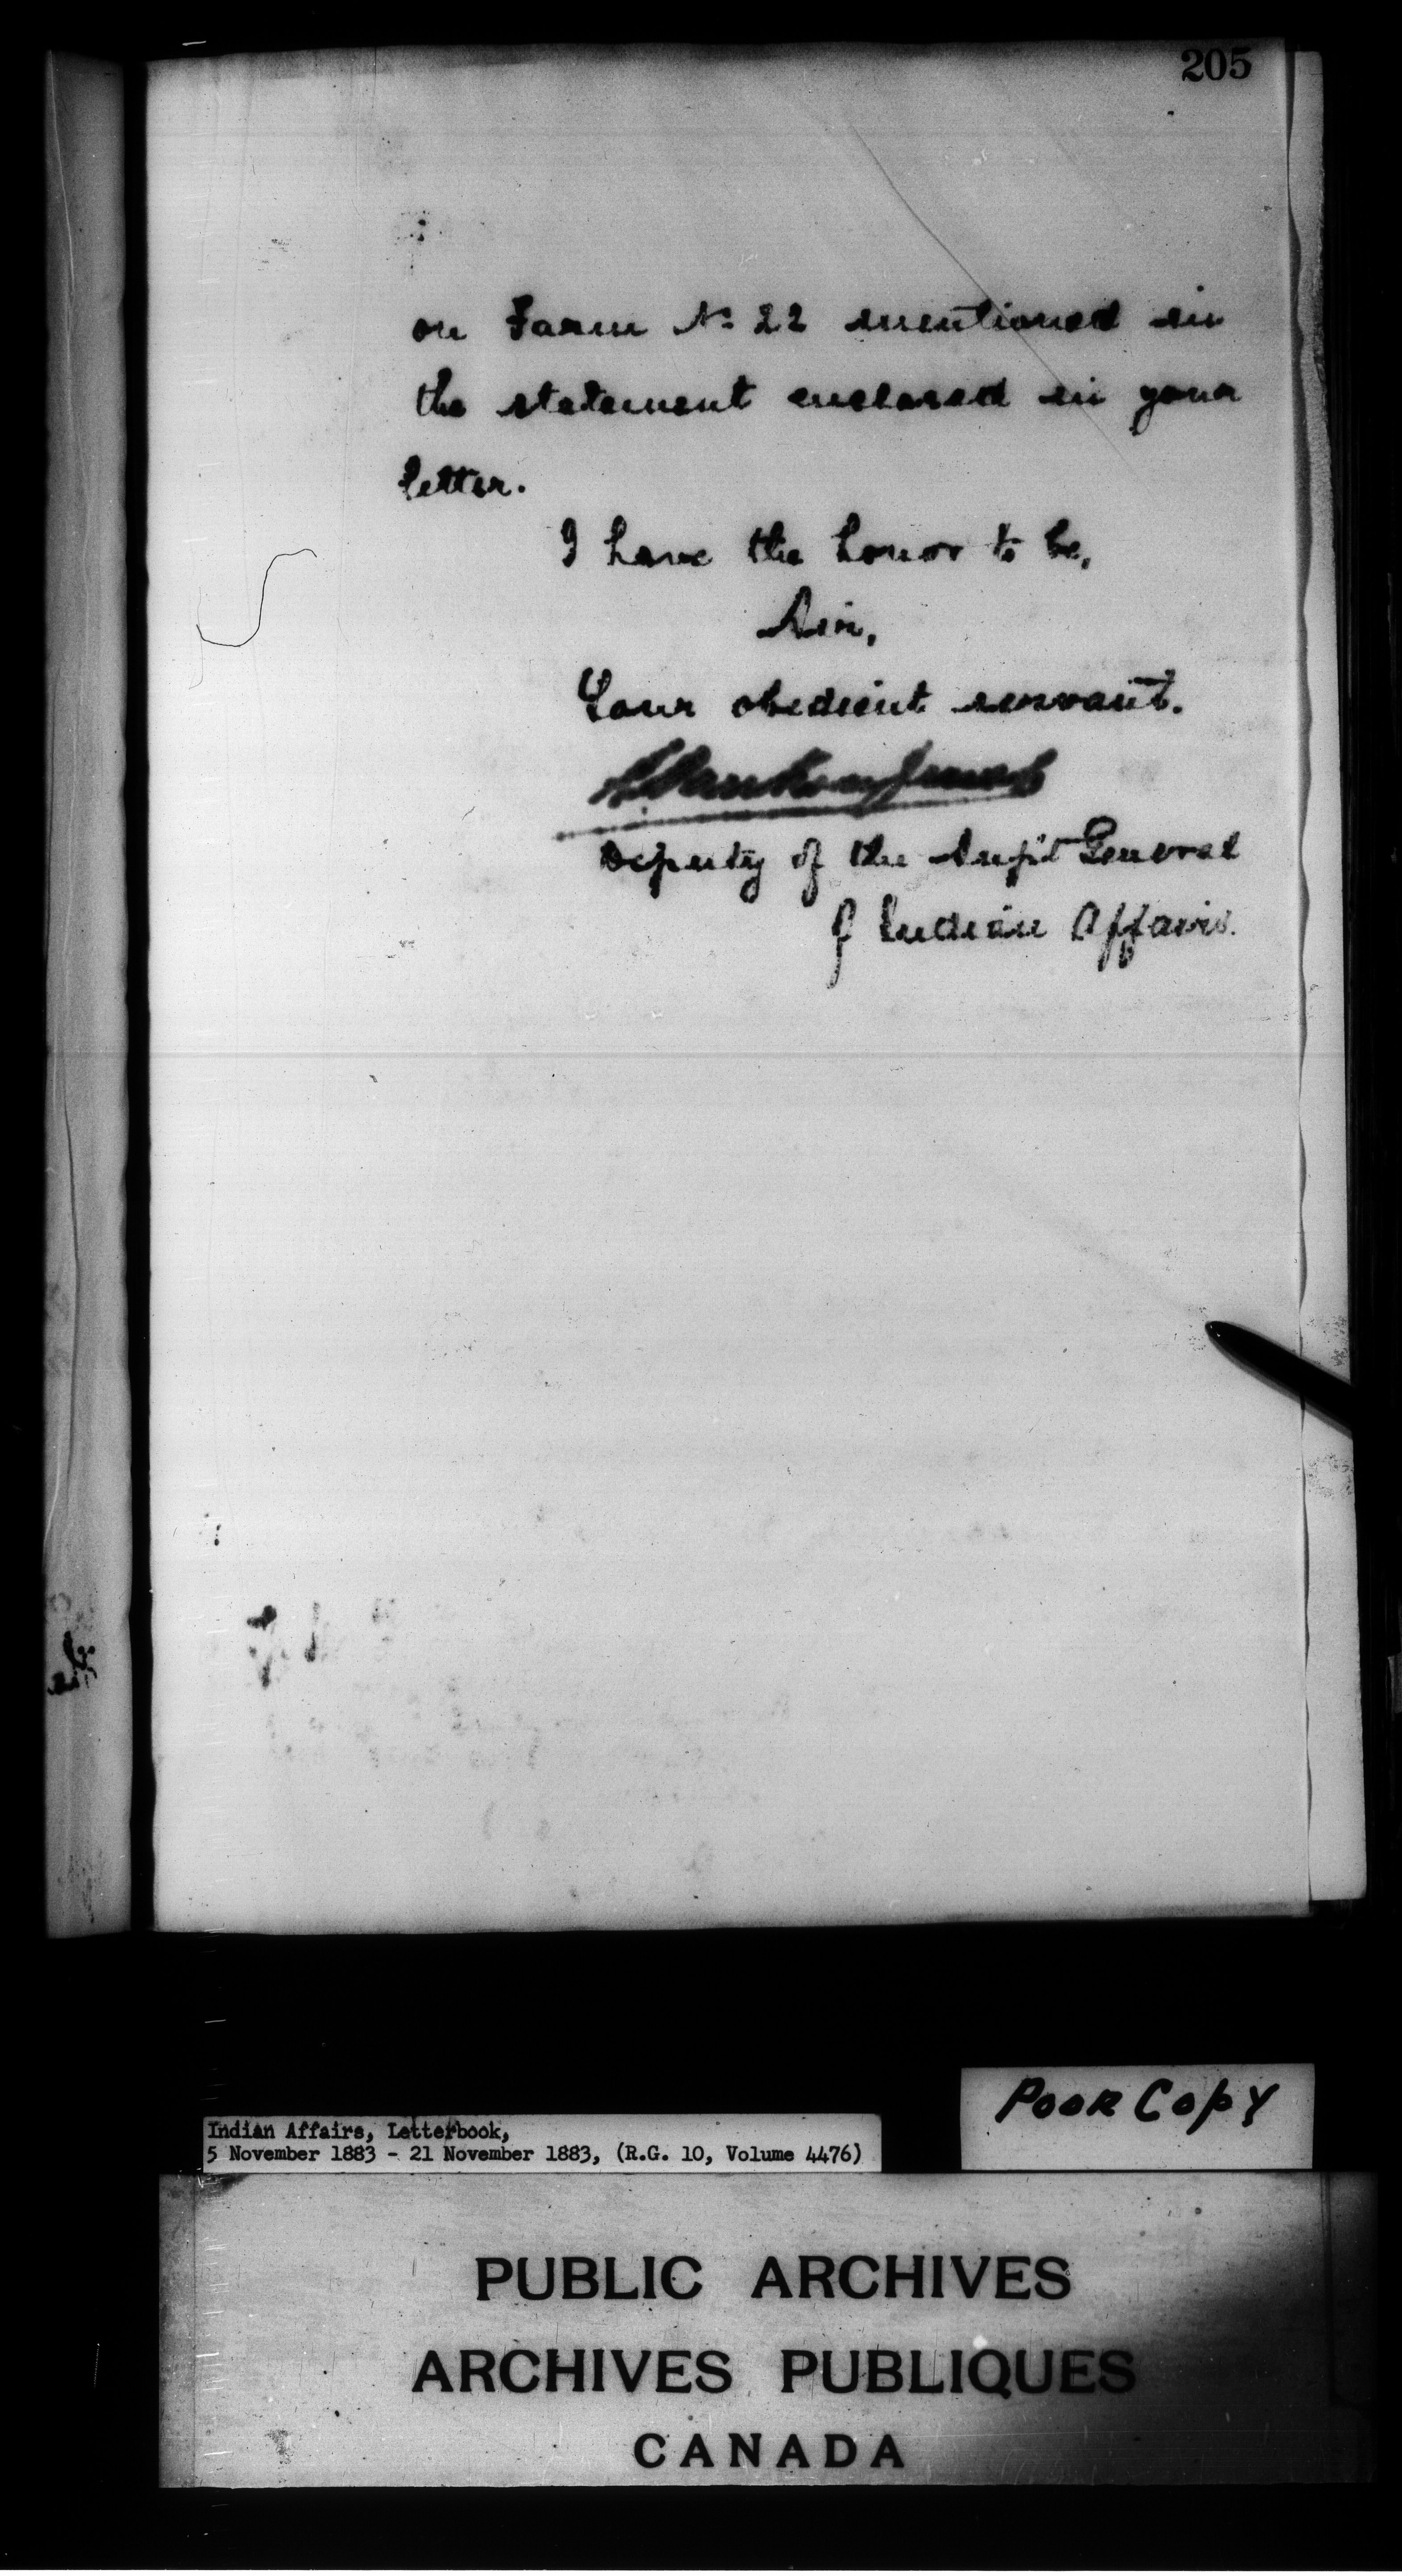 205
on Farm No 22 mentioned in
the statement enclosed in your
letter.
I have the honor to be,
Sir,
Your obedient servant.
Deputy of the Supt General
of Indian Affairs.
Poor Copy
Indian Affairs, Letterbook,
5 November 1883 - 21 November 1883, (R.G. 10, Volume 4476)
PUBLIC ARCHIVES
ARCHIVES PUBLIQUES
CANADA